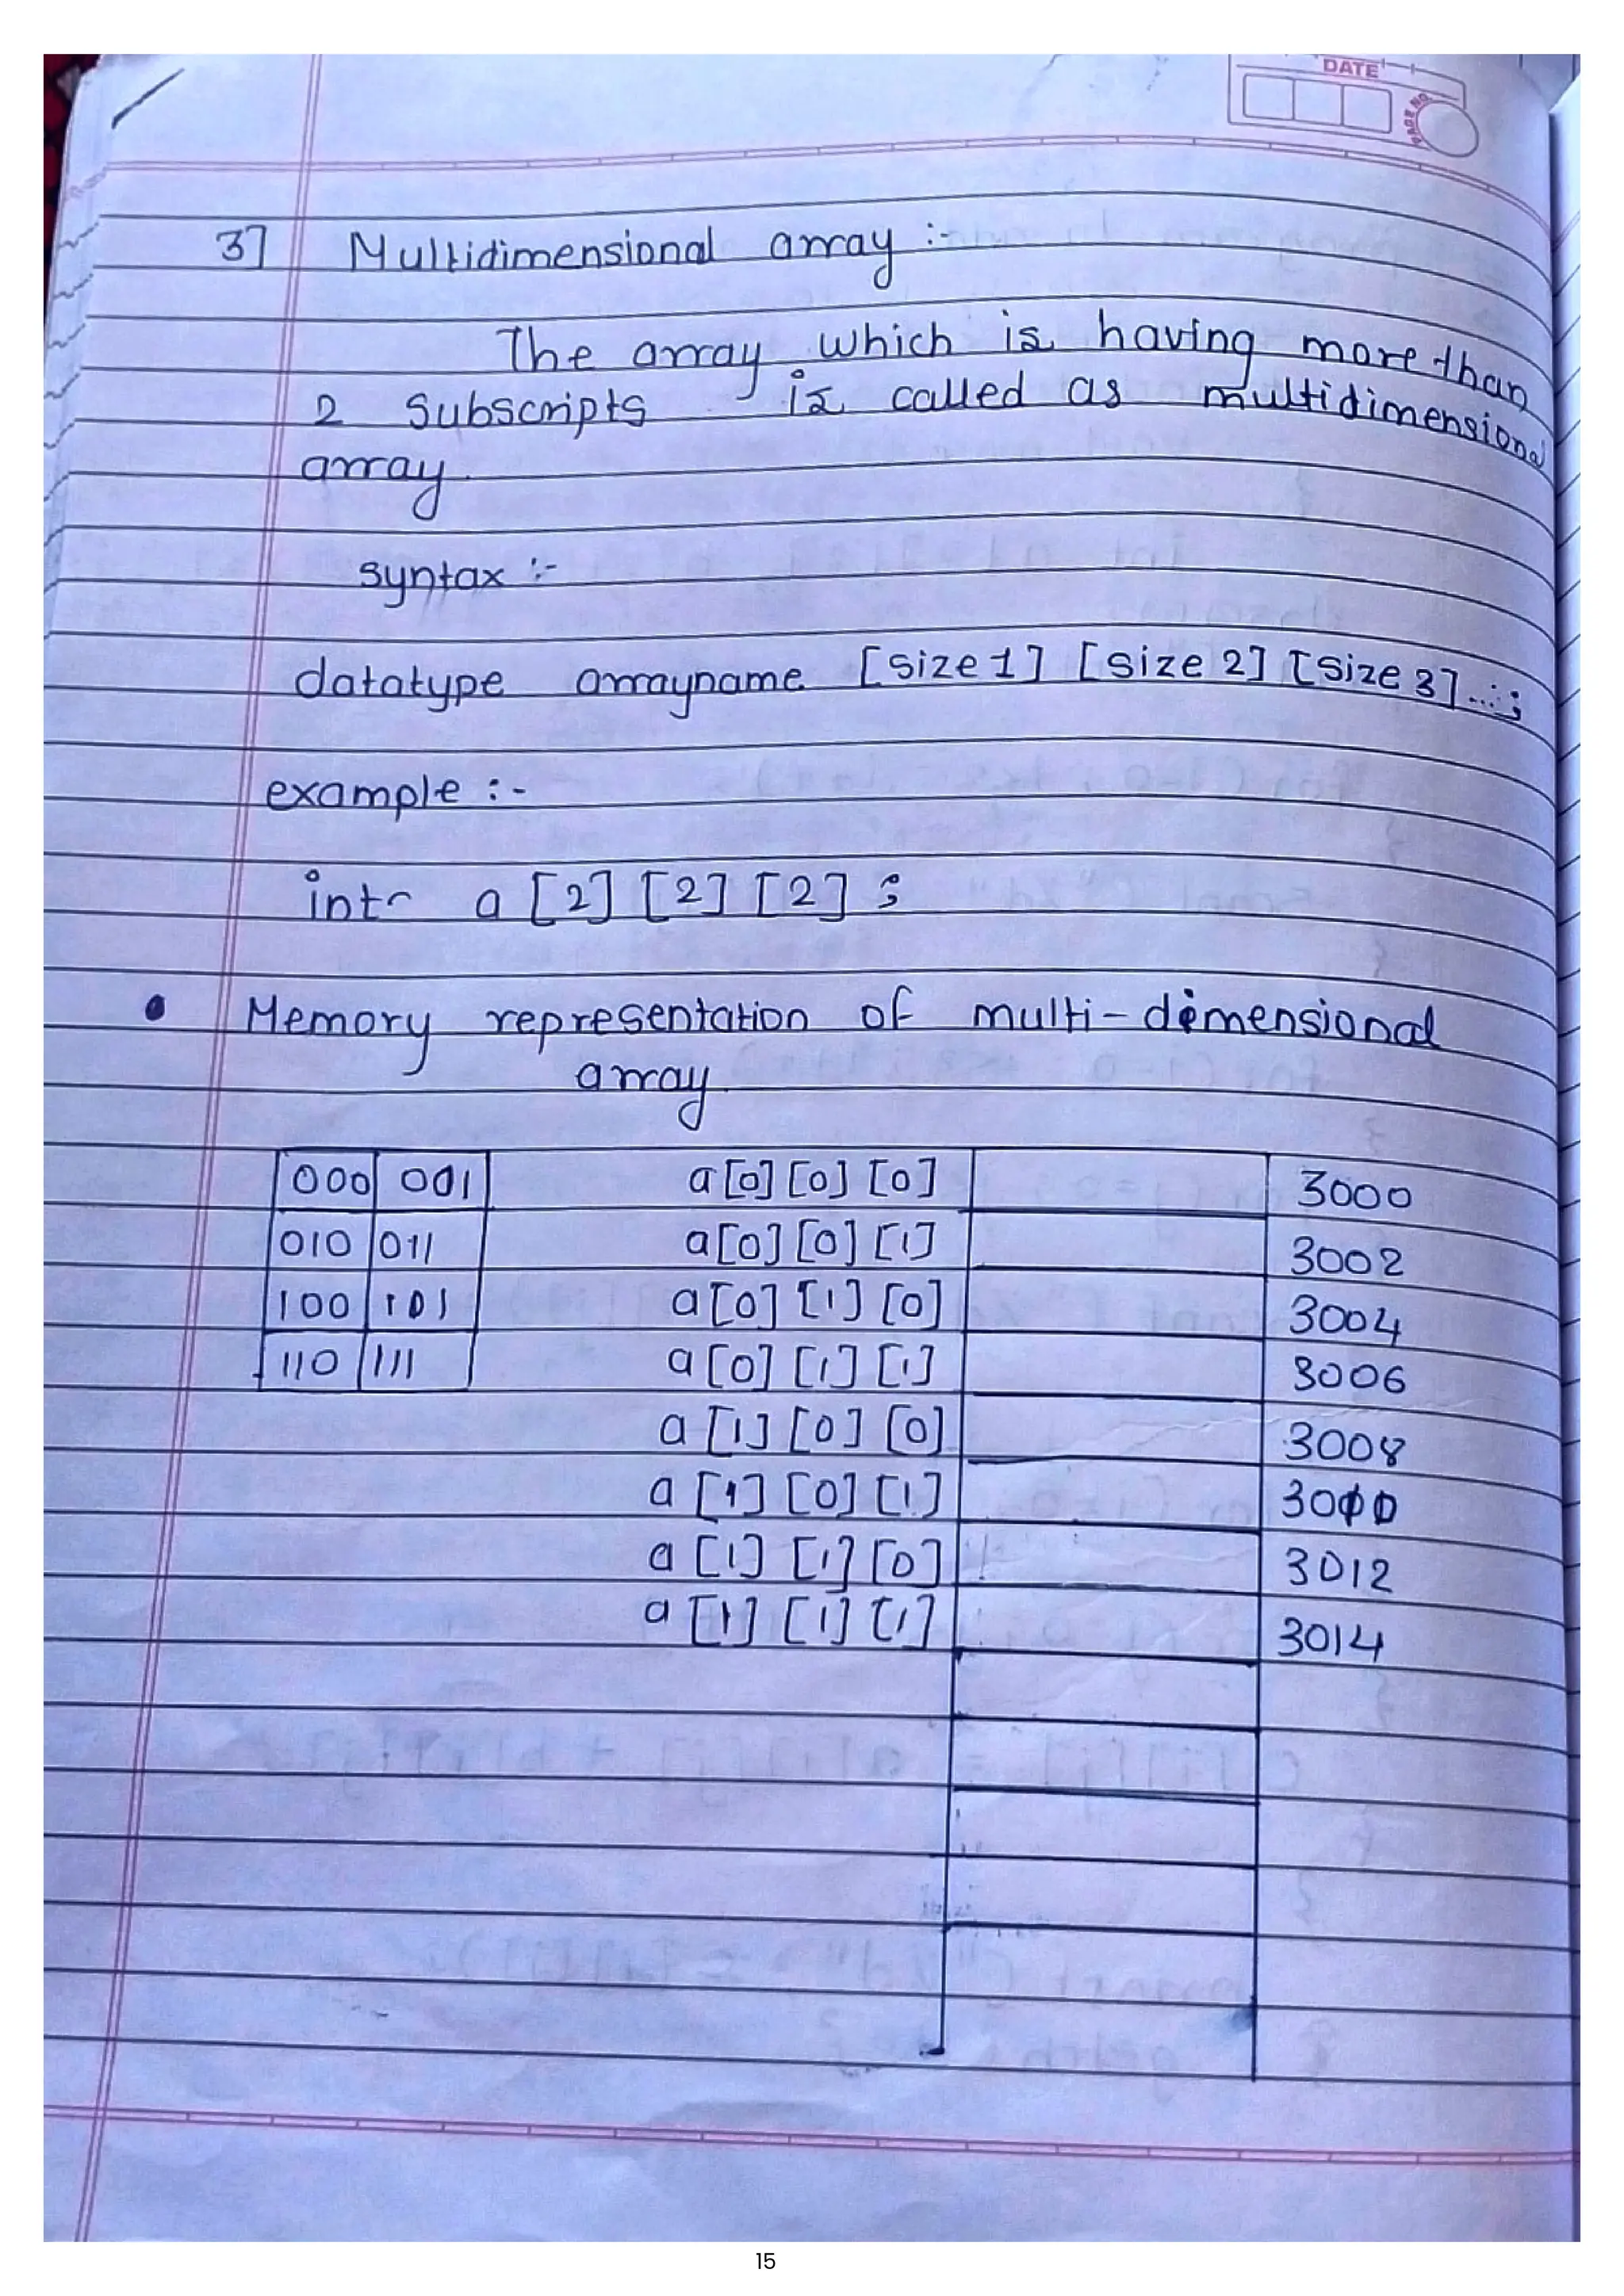 DATE
PAGE NO.
3] Multidimensional array :-
The array which is having more than
2 Subscripts is called as multidimensional
array.
syntax :-
datatype arrayname [size 1] [size 2] [size 3]...;
example :-
int a [2] [2] [2] ;
• Memory representation of multi-dimensional
array.
000 001 a[0] [0] [0] 3000
010 011 a[0] [0] [1] 3002
100 101 a[0] [1] [0] 3004
110 111 a[0] [1] [1] 3006
a [1] [0] [0] 3008
a [1] [0] [1]
a [1] [1] [0] 3012
a [1] [1] [1] 3014
15